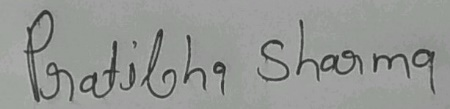 Pratibha Sharma